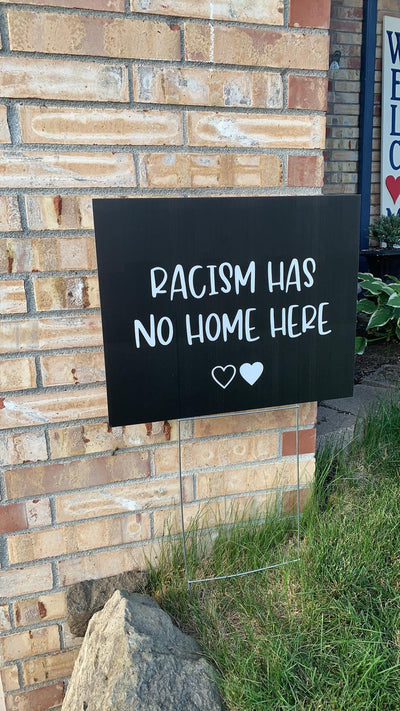 RACISM HAS
NO HOME HERE
WELC